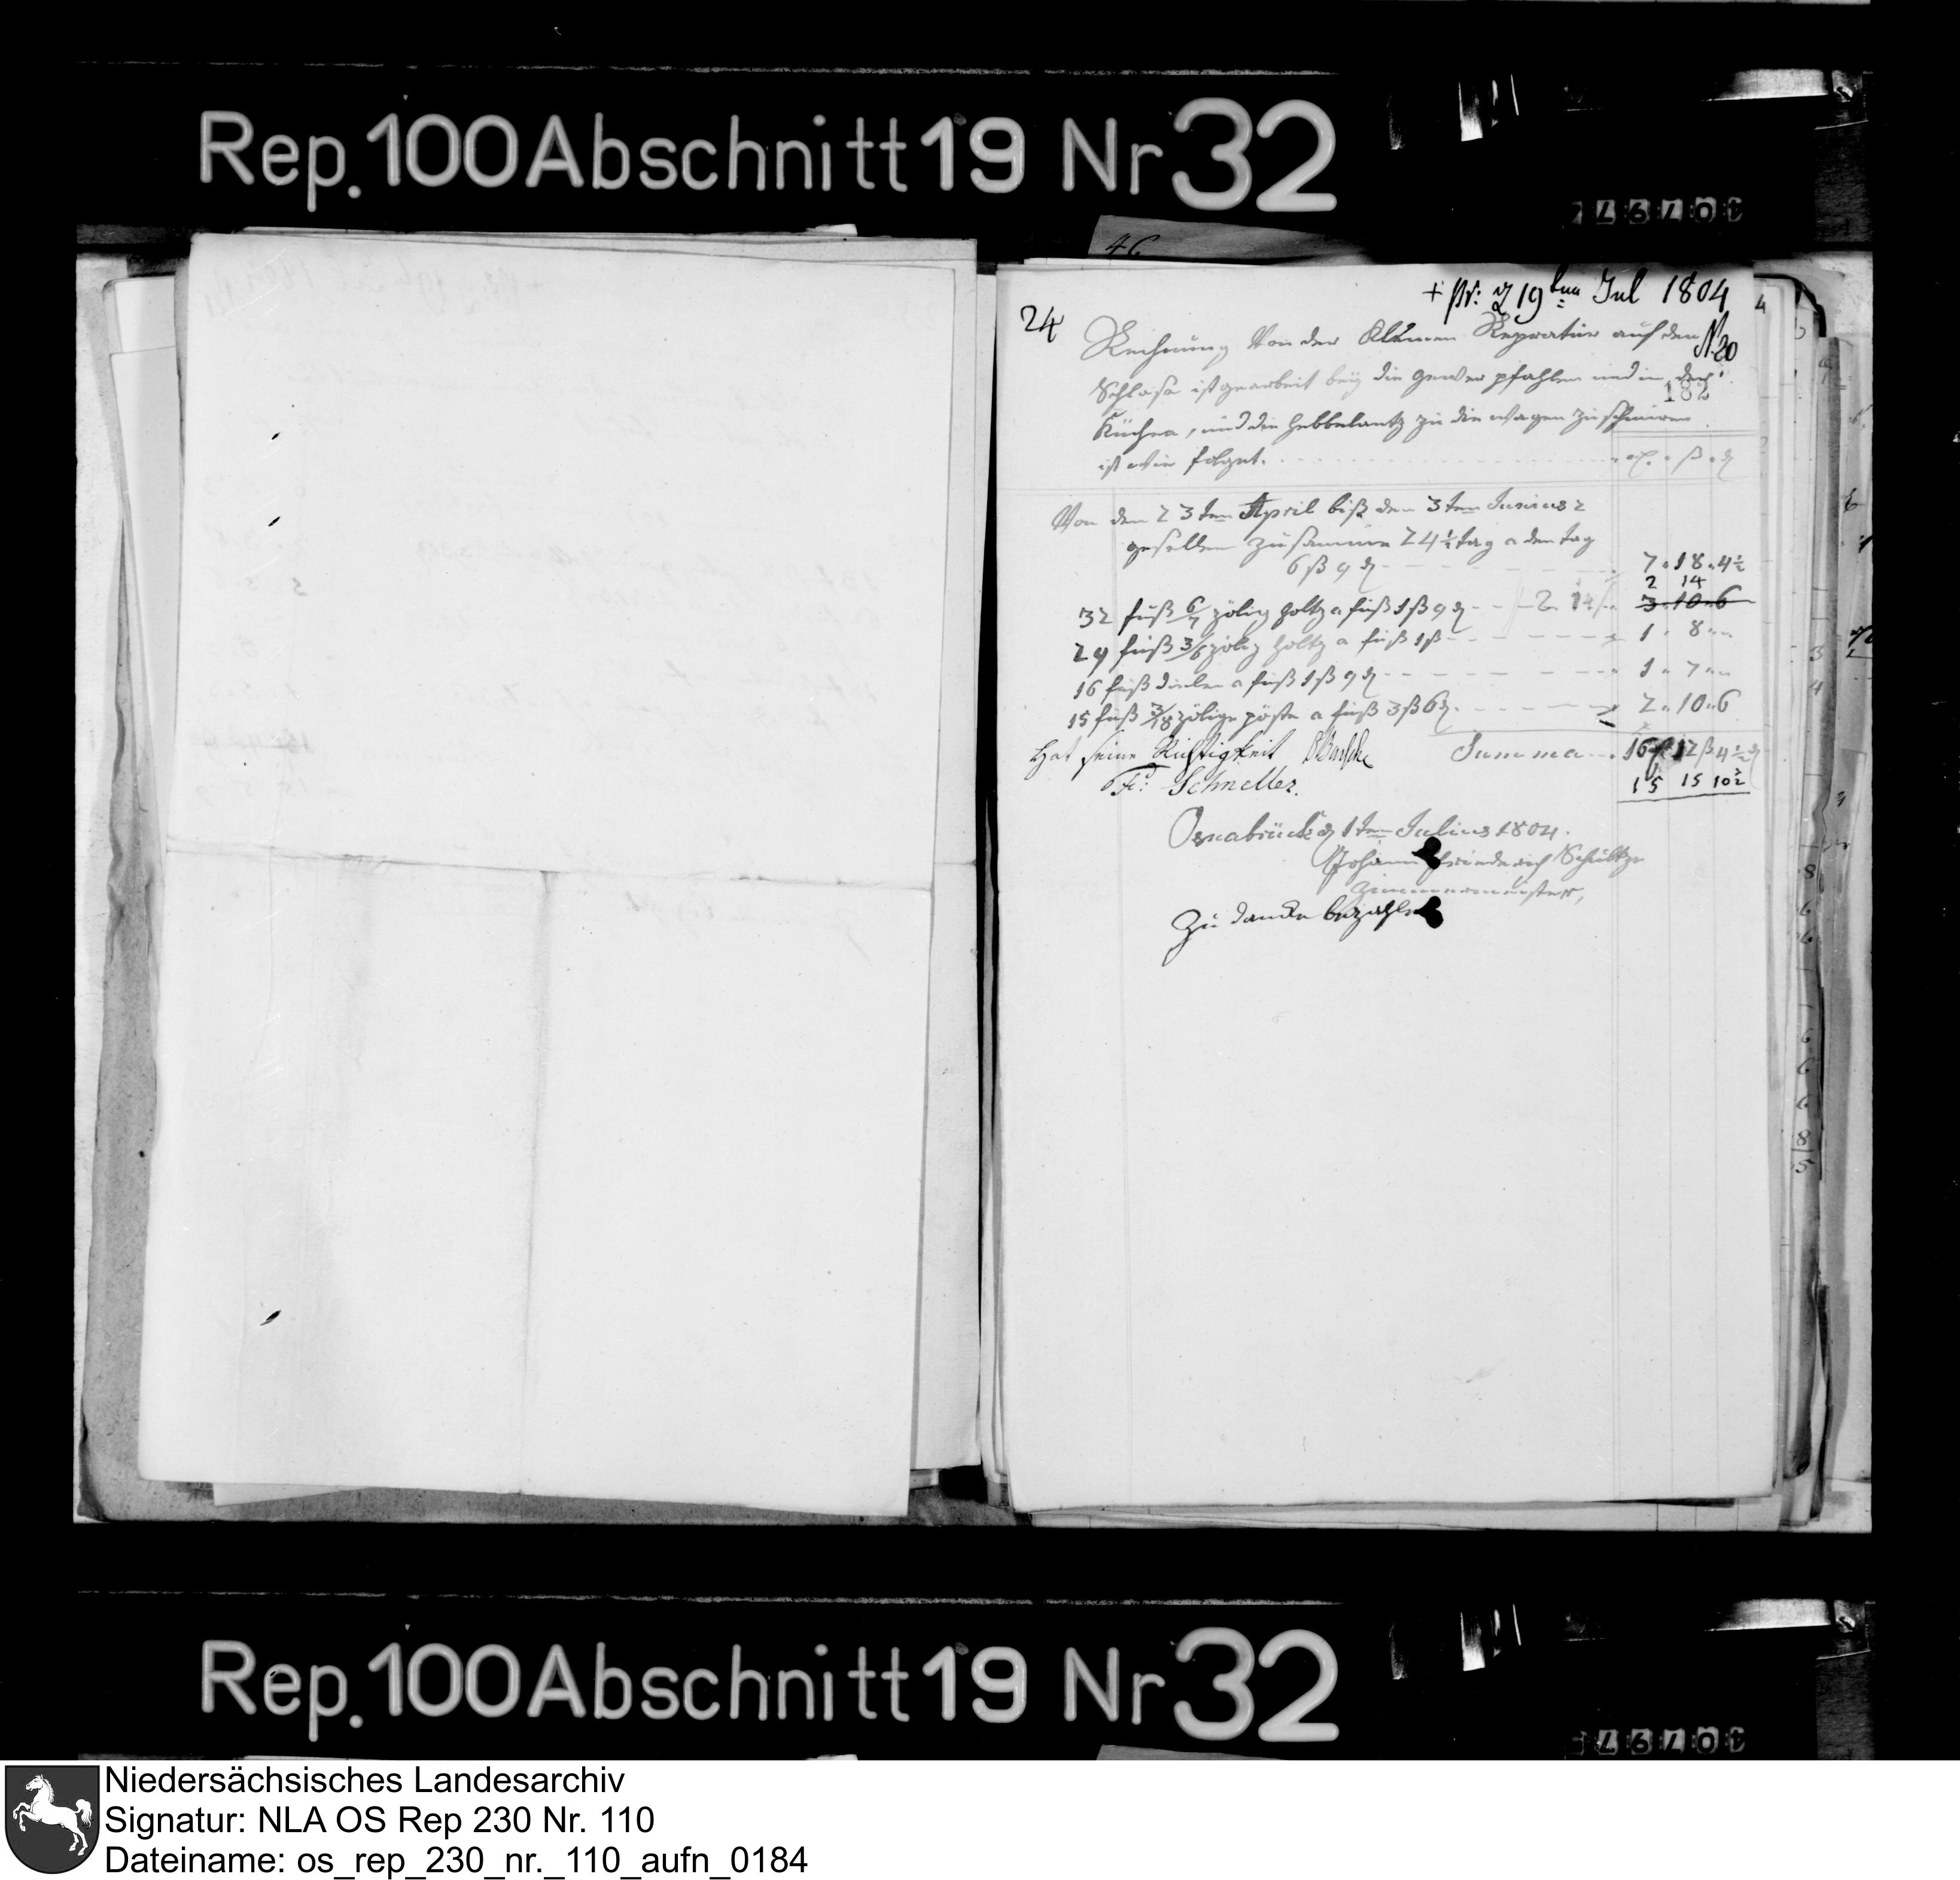 Rep. 100 Abschnitt 19 Nr 32
46
+ pr: d 19ten Jul 1804
24
Rechnung Von der Kleinen Repratur auf den
N. 20
Schlosse ist gearbeit bey die pfahlen und in der
182
Küchen, und die zu die wagen zu schmiren
ist wie folget.
Von dem 23ten April biß den 3ten Junius 2
gesellen zusammen 24 1/2 tag a den tag
6 ß 9 d 7 18 4 1/2
2 14
32 fuß 6/7 zölig holtz a fuß 1 ß 9 d 2 14 3 10 6
29 fuß 3/6 zölig holtz a fuß 1 ß 1 8
16 fuß dielen a fuß 1 ß 9 d 1 7
15 fuß 3/18 zölige pöste a fuß 3 ß 6 d 2 10 6
Hat seine Richtigkeit Summa 16 12 ß 4 1/2 d
Schmeller. 15 15 10 1/2
Osnabrück d 1ten Julius 1804.
Johann Friederich Schultze
Zimmermeister,
Zu dancke bezahlt
Rep. 100 Abschnitt 19 Nr 32
Niedersächsisches Landesarchiv
Signatur: NLA OS Rep 230 Nr. 110
Dateiname: os_rep_230_nr._110_aufn_0184